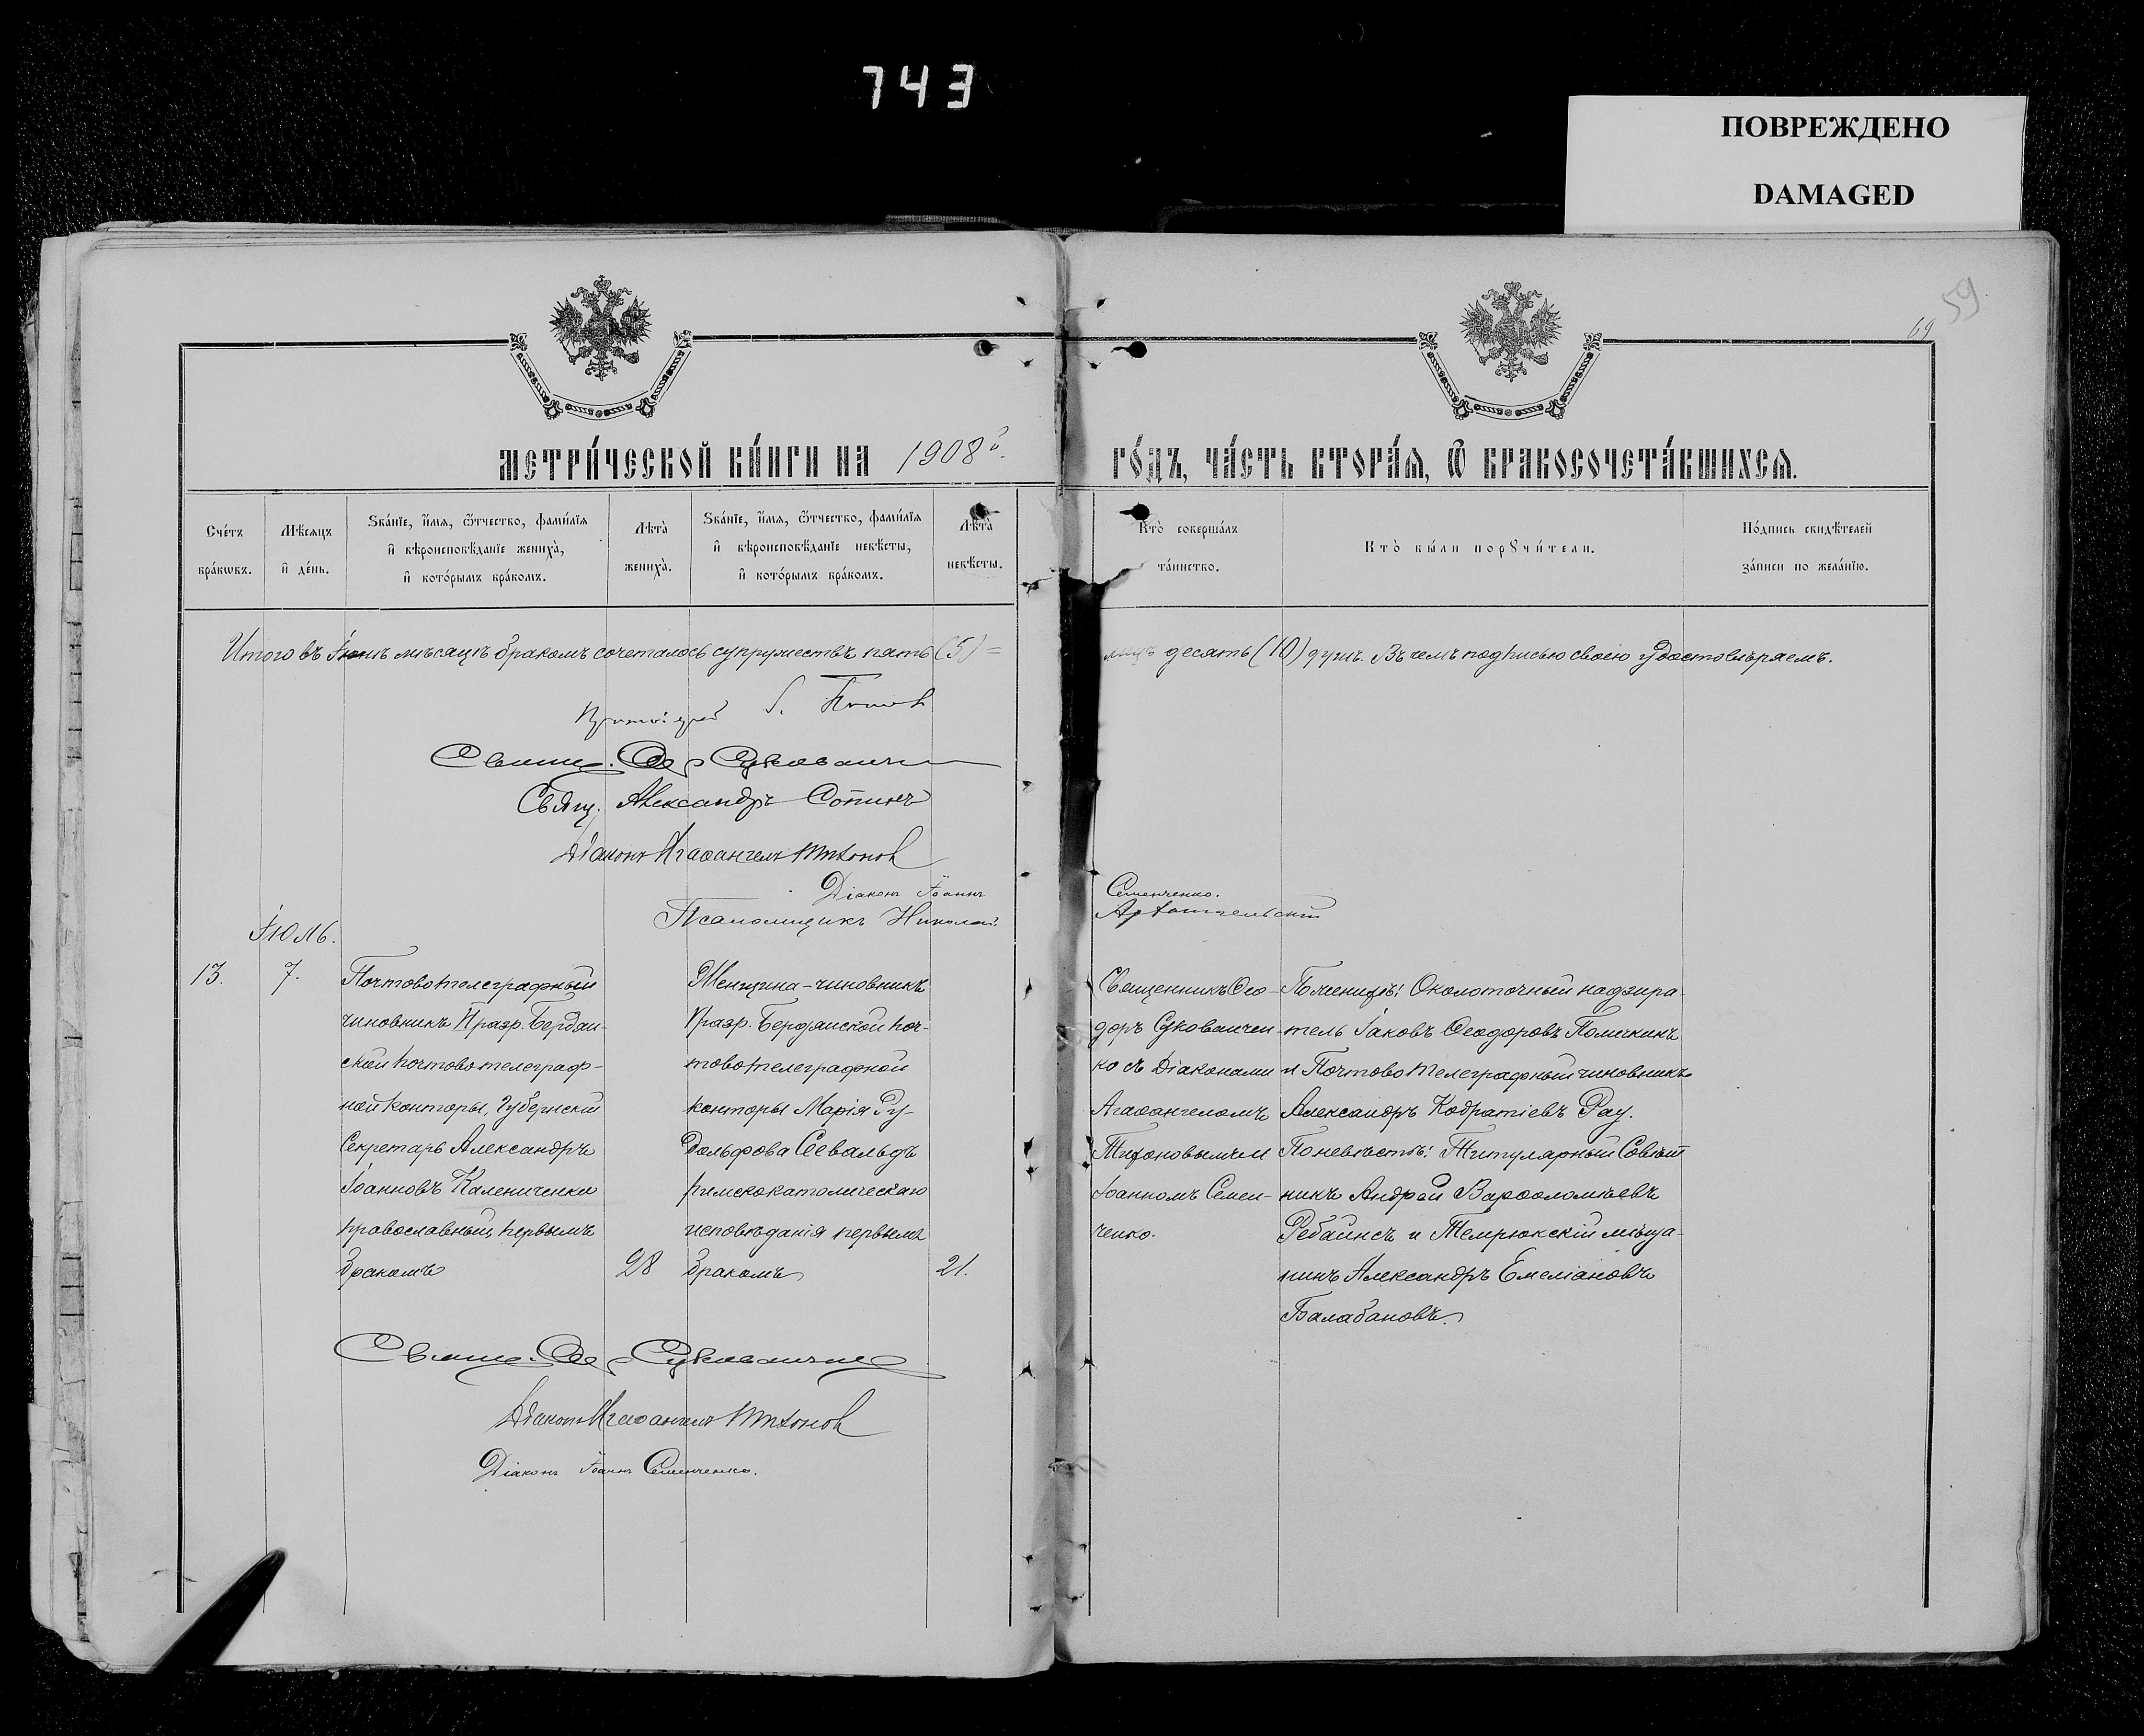 743
ПОВРЕЖДЕНО
DAMAGED
59
69
МЕТРИ́ЧЕСКОЙ КНИ́ГИ НА 1908 г.
ГО́ДЪ, ЧА́СТЬ ВТОРА́Я, Ѿ БРАКОСОЧЕТА́ВШИХСЯ.
Сче́тъ бра́кѡвъ.
Мѣ́сяцъ и҆ де́нь.
Ѕва́нїе, и҆́мя, ѻ҆́тчество, фами́лїя
и҆ вѣроисповѣ́данїе жениха̀,
и҆ кото́рымъ бра́комъ.
Лѣта̀ жениха̀.
Ѕва́нїе, и҆́мя, ѻ҆́тчество, фами́лїя
и҆ вѣроисповѣ́данїе невѣ́сты,
и҆ кото́рымъ бра́комъ.
Лѣта̀ невѣ́сты.
Кто̀ соверша́лъ та́инство.
Кто̀ бы́ли порꙋчи́тели.
По́дпись свидѣ́телей за́писи по жела́нїю.
Итого въ Іюнѣ мѣсяцѣ бракомъ сочеталось супружествъ пять (5) =
лицъ десять (10) душъ. Въ чемъ подписью своею удостовѣряемъ.
Протоіерей І. Поповъ
Священ. Ѳео Суковаиченко
Свящ. Александръ Сопинъ
Діаконъ Агаѳангелъ Тихонов
Діаконъ Іоаннъ Семенченко.
Псаломщикъ Николай Архангельскій
Іюль.
13.
7.
Почтовотелеграфный
чиновникъ IIразр. Бердян-
ской почтовотелеграф-
ной конторы, Губернскій
Секретарь Александръ
Іоанновъ Калениченко
православный, первымъ
бракомъ
28
Женщина-чиновникъ
IIразр. Бердянской поч-
товотелеграфной
конторы Марія Ру-
дольфова Севальдъ
римскокатолическаго
исповѣданія первымъ
бракомъ
21.
Священникъ Ѳео-
доръ Суковаичен-
ко съ Діаконами
Агаѳангеломъ
Тихоновымъ и
Іоанномъ Семен-
ченко.
По женихѣ: Околоточный надзира-
тель Іаковъ Ѳеодоровъ Полячкинъ
и Почтово Телеграфный чиновникъ
Александръ Кодратіевъ Рау.
По невѣстѣ: Титулярный Совѣт
никъ Андрей Варѳоломѣевъ
Ребаинсъ и Темрюкскій мѣща-
нинъ Александръ Емеліановъ
Балабановъ.
Священ. Ѳео Суковаиченко
Діаконъ Агаѳангелъ Тихонов
Діаконъ Іоаннъ Семенченко.